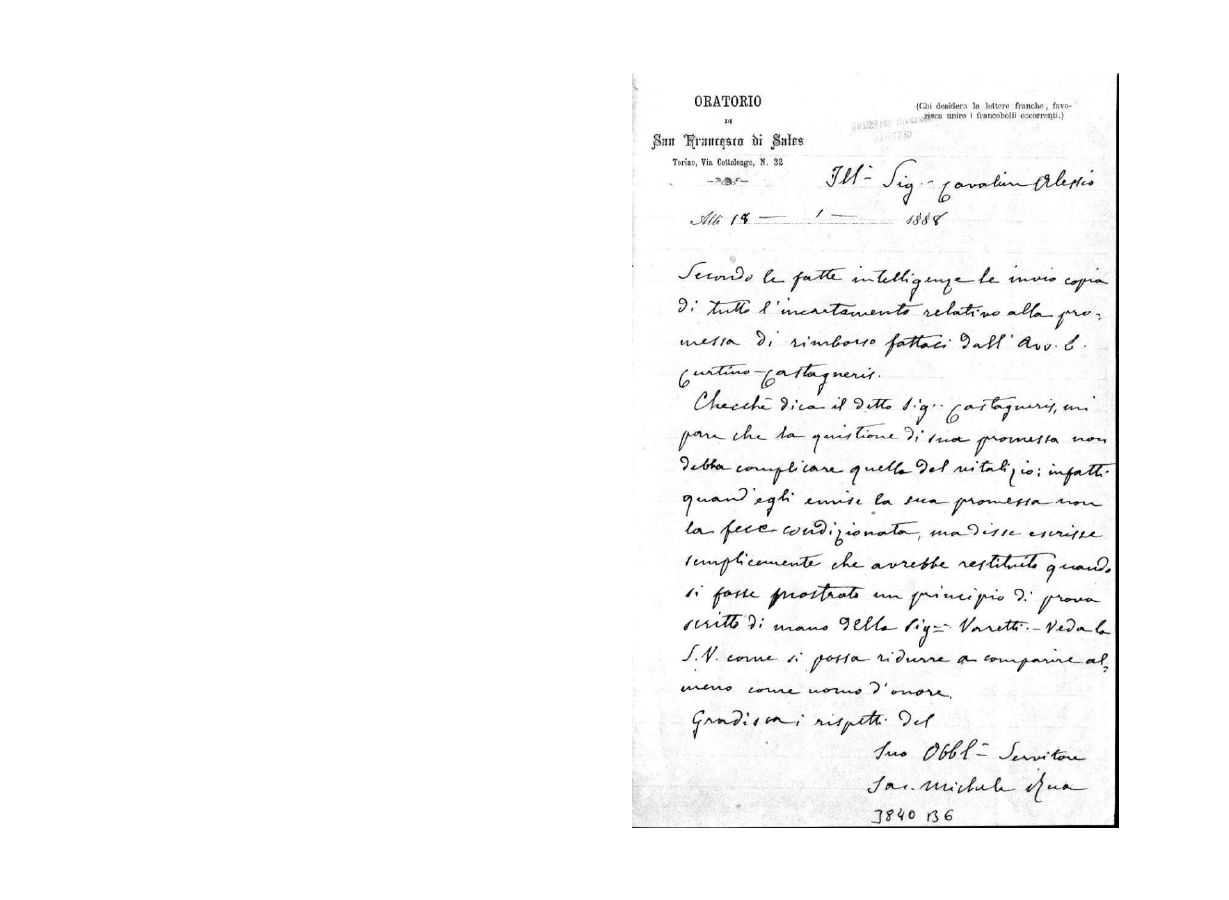 ORATORIO
DI
San Francesco di Sales
Torino, Via Cottolengo, N. 32
(Chi desidera le lettere franche, favo-
risca unire i francobolli occorrenti.)
Ill.mo Sig.r Cavaliere Alessio
Addì 18 — 1 — 1888
Secondo le fatte intelligenze le invio copia
di tutto l'incartamento relativo alla pro-
messa di rimborso fattaci dall' Avv. C.
Curtino-Castagneris.
Checchè dica il detto Sig.r Castagneris, mi
pare che la quistione di sua promessa non
debba complicare quella del vitalizio; infatti
quand'egli emise la sua promessa non
la fece condizionata, ma disse e scrisse
semplicemente che avrebbe restituito quando
si fosse mostrato un principio di prova
scritto di mano della Sig.ra Varetti. - Veda la
S.V. come si possa ridurre a comparire al-
meno come uomo d'onore.
Gradisca i rispetti del
Suo Obbl.mo Servitore
Sac. Michele Rua
3840 B6